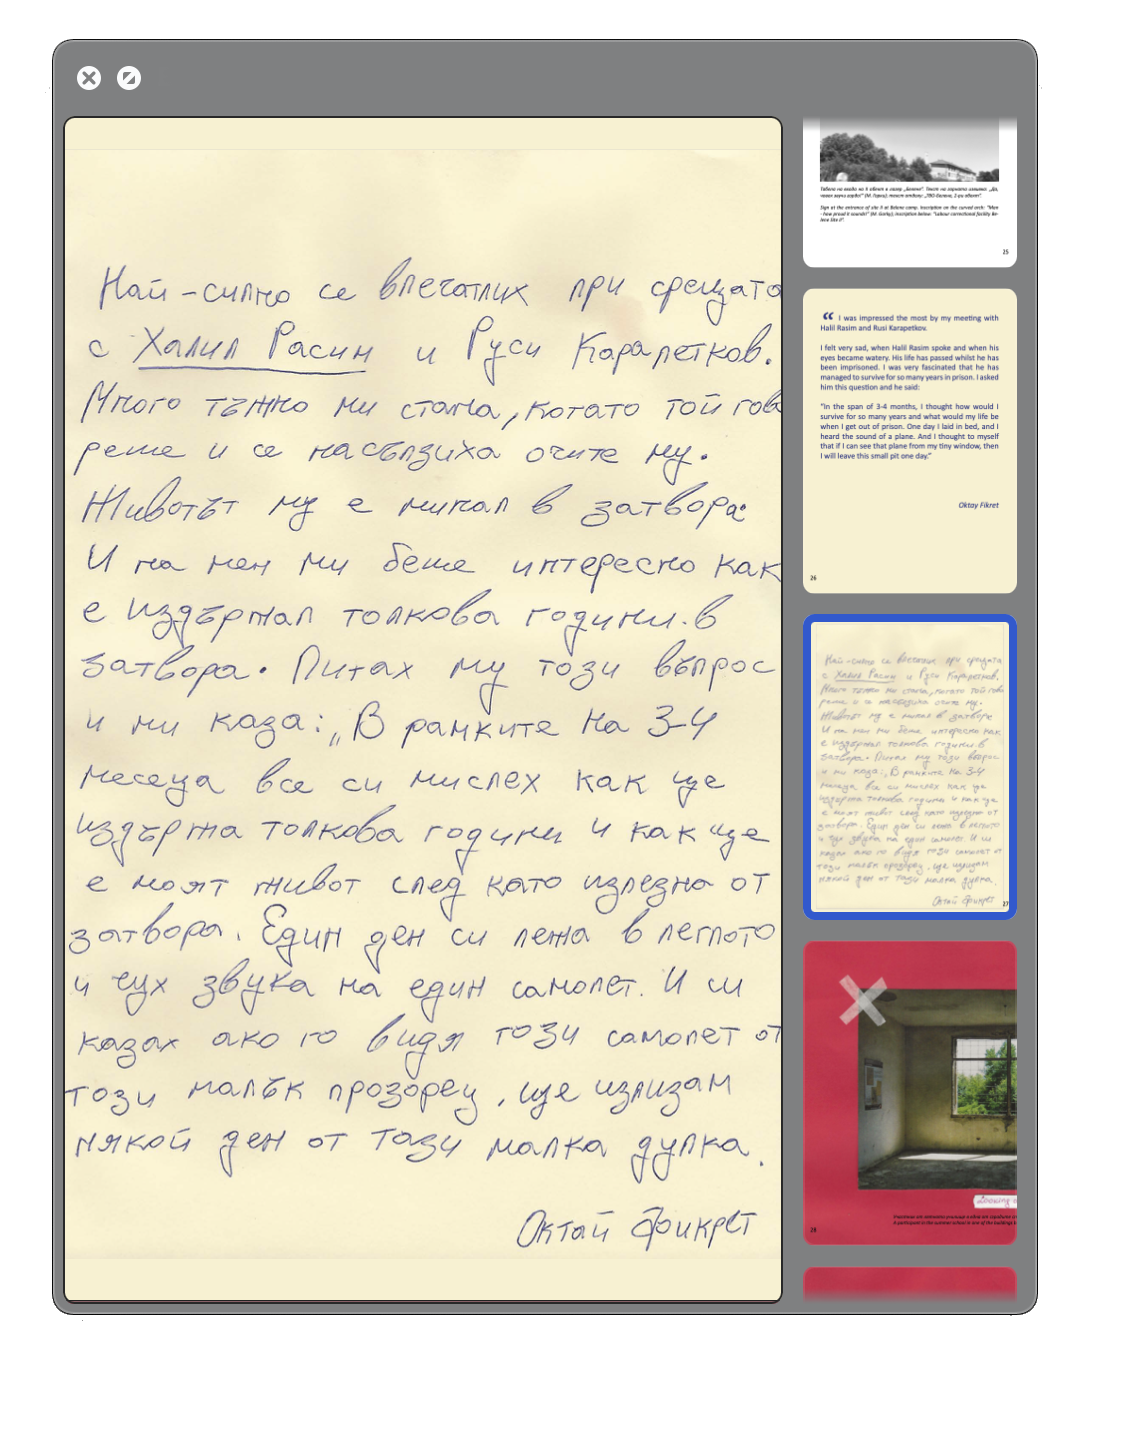 Най-силно се впечатлих при срещата
с Халил Расим и Руси Карапетков.
Много тъжно ми стана, когато той гово
реше и се насълзиха очите му.
Животът му е минал в затвора.
И на мен ми беше интересно как
е издържал толкова години в
затвора. Питах му този въпрос
и ми каза: „В рамките на 3-4
месеца все си мислех как ще
издържа толкова години и как ще
е моят живот след като излезна от
затвора. Един ден си лежа в леглото
и чух звука на един самолет. И си
казах ако го видя този самолет от
този малък прозорец, ще излизам
някой ден от тази малка дупка.
Октай Фикрет
Sign at the entrance of site II at Belene camp. Inscription on the curved arch: "Man
- how proud it sounds!" (M. Gorky); inscription below: "Labour correctional facility Be-
lene Site II".
25
“ I was impressed the most by my meeting with
Halil Rasim and Rusi Karapetkov.
I felt very sad, when Halil Rasim spoke and when his
eyes became watery. His life has passed whilst he has
been imprisoned. I was very fascinated that he has
managed to survive for so many years in prison. I asked
him this question and he said:
"In the span of 3-4 months, I thought how would I
survive for so many years and what would my life be
when I get out of prison. One day I laid in bed, and I
heard the sound of a plane. And I thought to myself
that if I can see that plane from my tiny window, then
I will leave this small pit one day."
Oktay Fikret
26
27
Looking
28